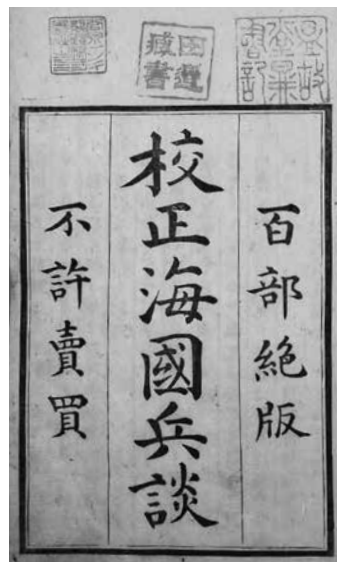 田邊
藏書
百部絶版
校正海國兵談
不許賣買